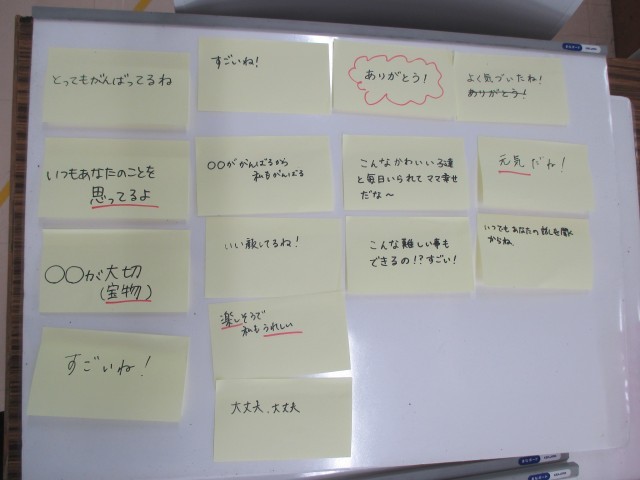 とってもがんばってるね
すごいね!
ありがとう!
よく気づいたね!
ありがとう!
いつもあなたのことを
思ってるよ
〇〇ががんばるから
私もがんばる
こんなかわいい子達
と毎日いられてママ幸せ
だな〜
元気だね!
〇〇が大切
(宝物)
いい顔してるね!
こんな難しい事も
できるの!?すごい!
いつでもあなたの話しを聞く
からね
すごいね!
楽しそうで
私もうれしい
大丈夫、大丈夫